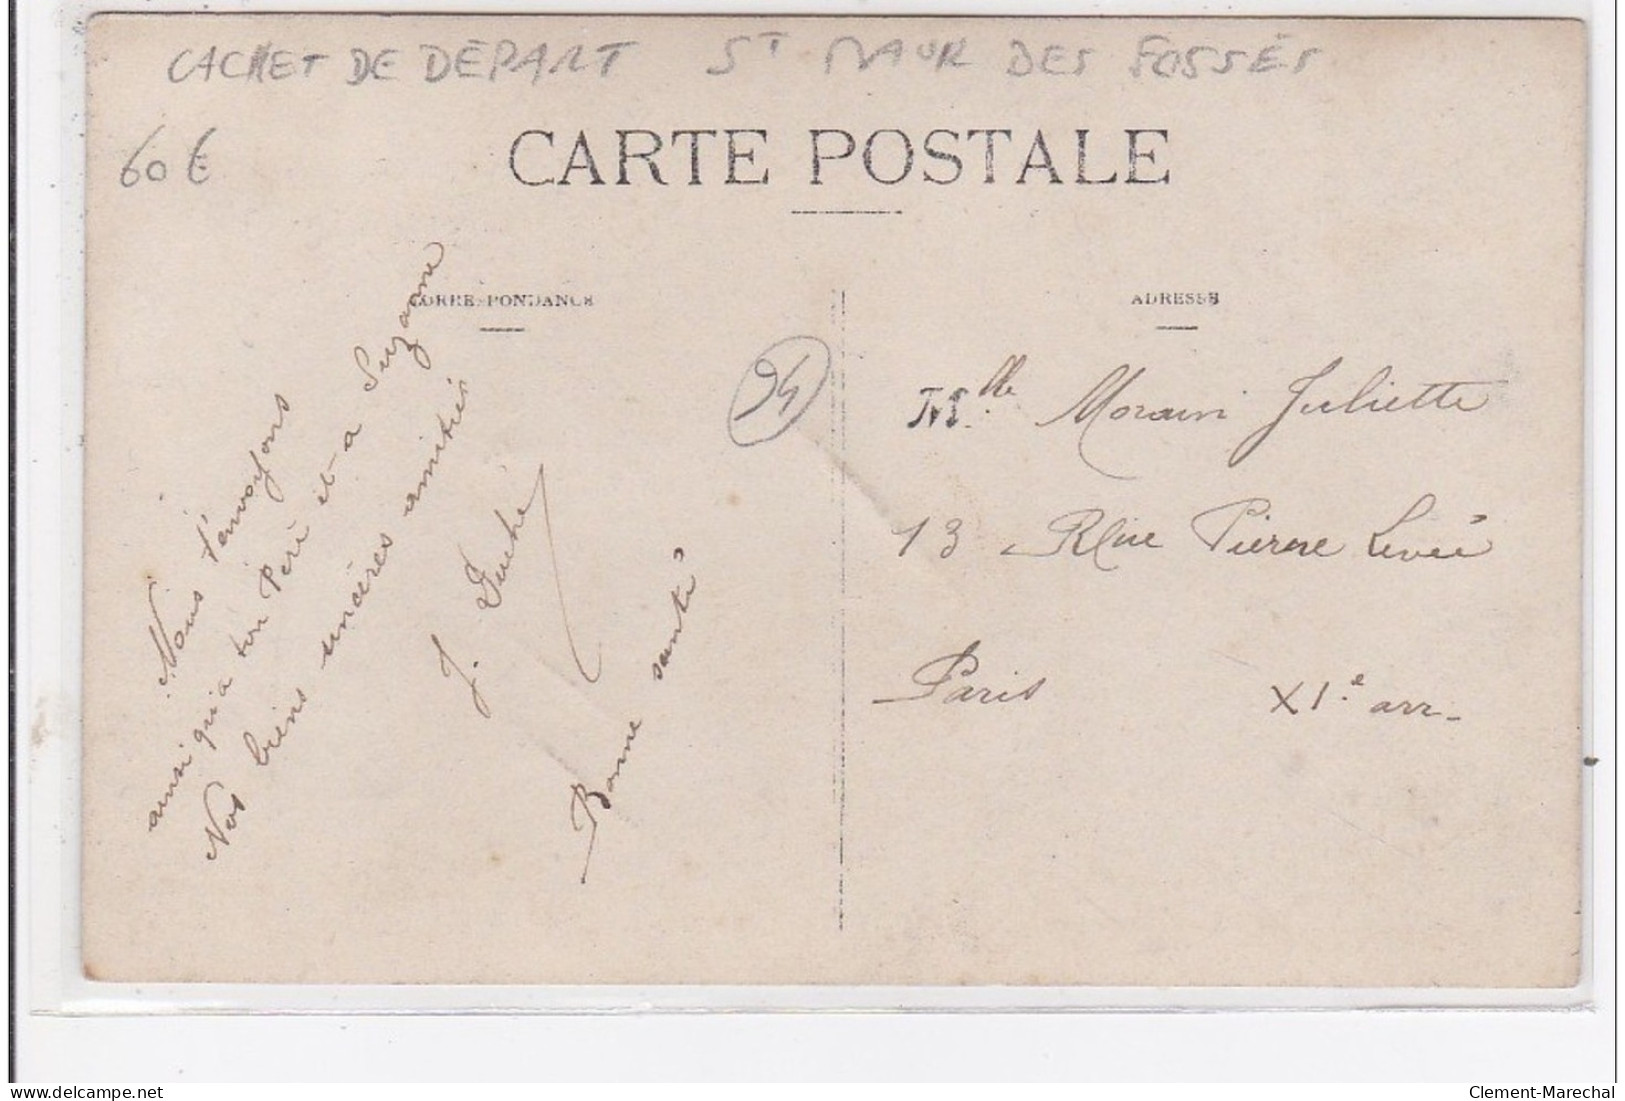 CACHET DE DÉPART ST MAUR DES FOSSÉS
60 €
CARTE POSTALE
CORRESPONDANCE
Nous t'envoyons
ainsi qu'a ton Père et a Suzanne
Nos biens sincères amitiés
J.
Bonne santé
94
ADRESSE
Mlle Morain Juliette
13 Rue Pierre Levée
Paris XIe arr.
delcampe.net
Clement-Marechal